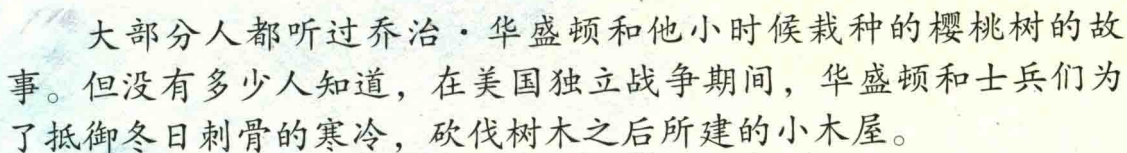 大部分人都听过乔治·华盛顿和他小时候栽种的樱桃树的故
事。但没有多少人知道，在美国独立战争期间，华盛顿和士兵们为
了抵御冬日刺骨的寒冷，砍伐树木之后所建的小木屋。